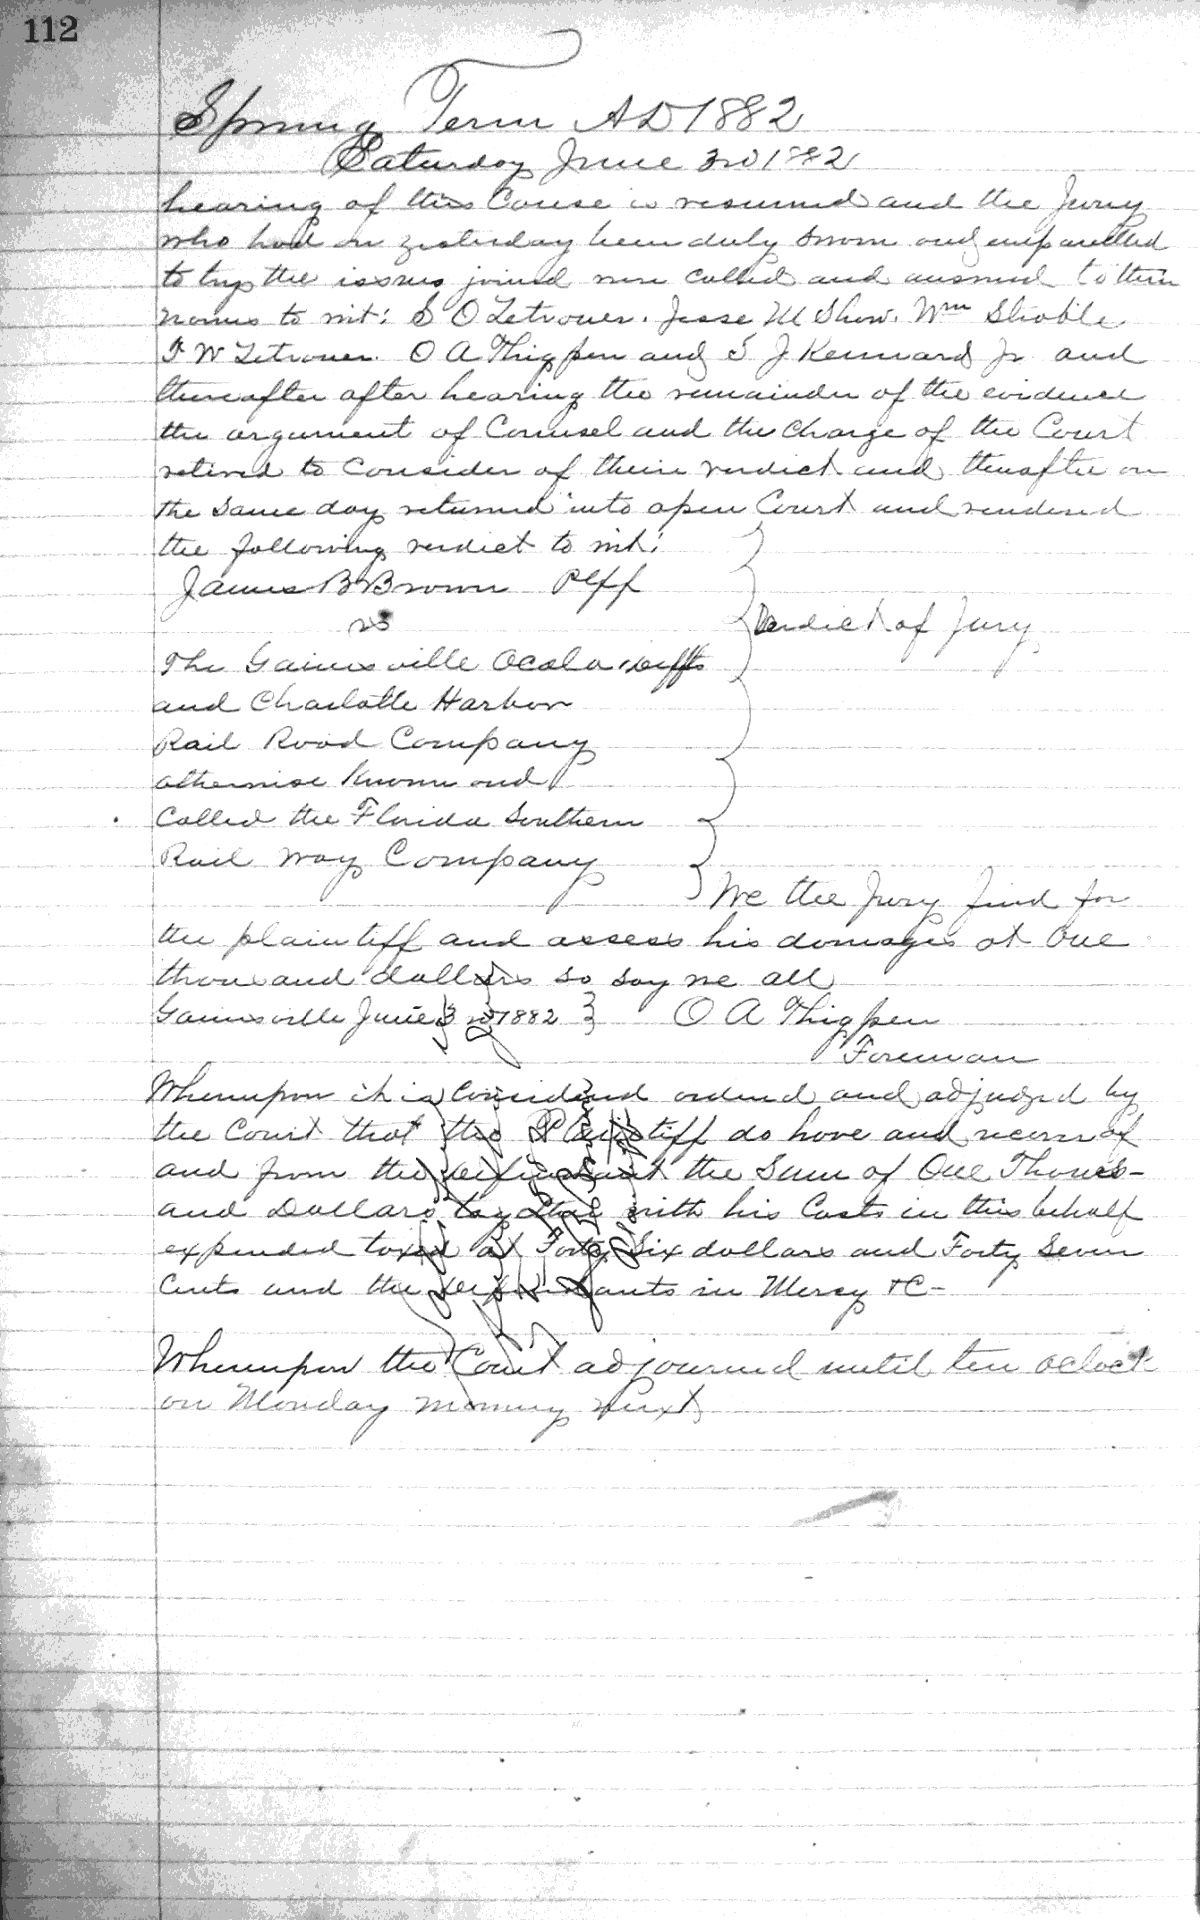 112
Spring Term AD 1882
Saturday June 3rd 1882
hearing of this Cause is resumed and the Jury
who had on yesterday been duly sworn and empanelled
to try the issues joined were called and answered to their
names to wit: S O Zetrouer. Jesse M Shaw. Wm Stroble
F W Zetrouer. O A Thigpen and S J Kennard Jr and
thereafter after hearing the remainder of the evidence
the argument of Counsel and the Charge of the Court
retired to Consider of their verdict and thereafter on
the same day returned into open Court and rendered
the following verdict to wit:
James B Brown Plff
vs
Verdict of Jury
The Gainesville Ocala Deffts
and Charlotte Harbor
Rail Road Company
otherwise known and
Called the Florida Southern
Rail way Company
We the Jury find for
the plaintiff and assess his damages at One
thousand dollars so say we all
Gainesville June 3rd 1882 O A Thigpen
Foreman
Whereupon it is Considered ordered and adjudged by
the Court that the Plaintiff do have and recover of
and from the defendant the Sum of One Thous-
and Dollars together with his Costs in this behalf
expended taxed at Forty Six dollars and Forty Seven
Cents and the defendants in Mercy &C-
Whereupon the Court adjourned until ten oclock
on Monday morning next